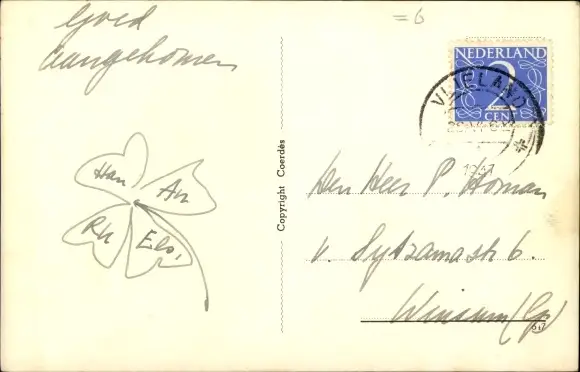 Goed
aangekomen
Han
An
Ru
Els,
Copyright Coerdès
= 6
NEDERLAND
2
CENT
VLIELAND
1947
Den Heer P. Homan
v. Sytzamastr 6.
Winsum (Gr)